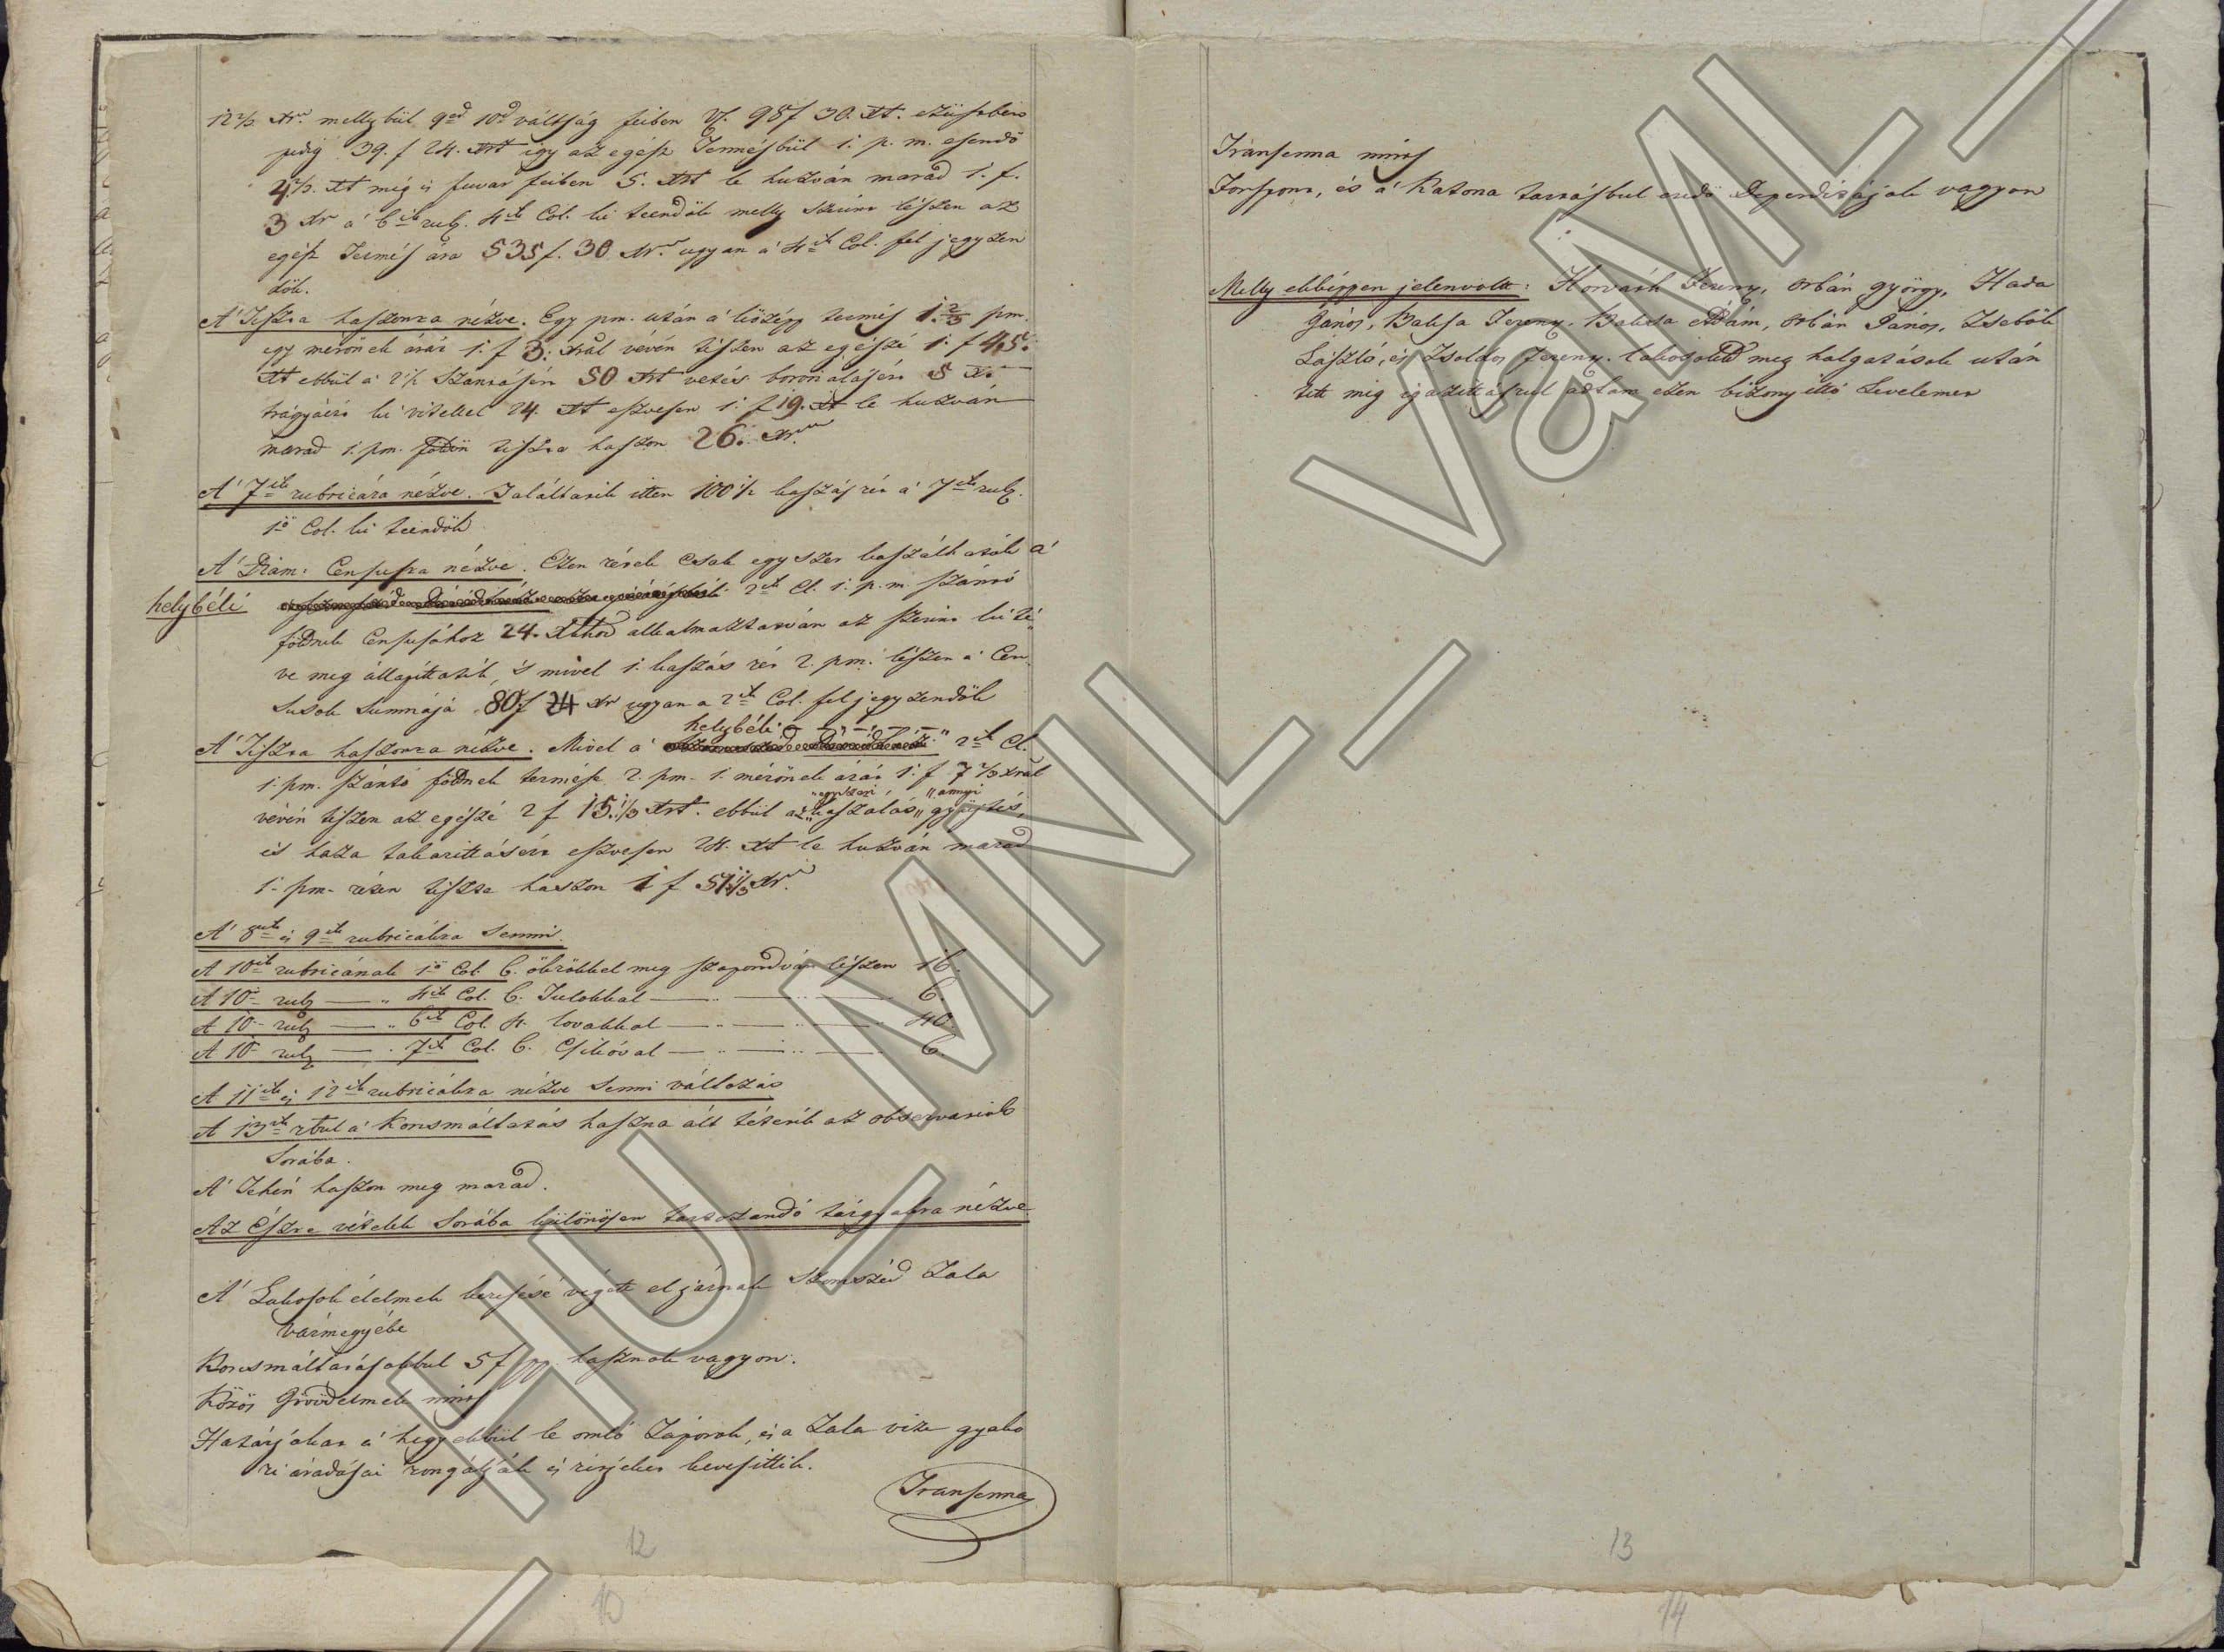 12 2/3 Xr. mellybül 9ed 10d váltság feiben Vf. 98f 30. Xt. ezüstben
pedig 39. f 24. Xrt igy az egész Termésbül 1. p. m. esendő
4 2/3. Xt még is fuvar feiben 5. Xrt le huzván marad 1. f.
3 Xr a' 6ik rub. 4ik Col. ki teendők melly szerint lészen az
egész Termés ára 535 f. 30 Xr. ugyan a' 4ik Col. fel jegyzen
dök.
A' Tiszta haszonra nézve. Egy pm. után a' középp termés 1. 2/3 pm.
egy mérőnek árát 1. f 3. Xrúl vévén tészen az egészé 1. f 45.
Xt ebbül a' 2 1/2 Szántásért 50 Xrt vetés boronálásért 5 Xr
trágyáért ki vitellel 24. Xt eszvesen 1. f 19. Xt le huzván
marad 1. pm. födön tiszta haszon 26. Xr.
A' 7ik rubricára nézve. Találtatik itten 100 1/2 kaszás rét a' 7ik rub.
1ő Col. ki teendők
A' Diam. Censusra nézve. Ezen rétek csak egyszer kaszálhatók a'
helybéli 2ik Cl. 1. p. m. szántó
födnek Censusához 24. Xthoz alkalmaztatván az szerint ki té-
ve meg állapíttatik, 's mivel 1. kaszás rét 2. pm. lészen a' Cen-
susok summájá 80f 24 Xr ugyan a 2ik Col. fel jegyzendők
helybéli
A' Tiszta haszonra nézve. Mivel a' 2ik Cl.
1. pm. szántó födnek termése 2. pm. 1. mérőnek árát 1. f 7 2/3 Xrúl
egyszeri annyi
vévén tészen az egészé 2 f 15. 1/3 Xrt. ebbül az kaszalás gyüjtés,
és haza takarittásért eszvesen 24. Xt le huzván marad
1. pm. réten tiszta haszon 1 f 51 1/3 Xr.
A' 8ik és 9ik rubricákra semmi.
A 10ik rubricának 1ő Col. 6. ökrökkel meg szaporodván lészen 16.
A 10 rub — " 4ik Col. 6. Tulokkal — " — " — 6.
A 10 rub — " 6ik Col. 4. lovakkal — " — " — 40.
A 10 rub — " 7ik Col. 6. Csikóval — " — " — 6.
A 11ik és 12ik rubricákra nézve semmi változás
A 13ik rbul a' Korcsmáltatás haszna ált tétetik az observatiok
Sorába.
A' Tehén haszon meg marad.
Az Észre vételek Sorába különösen tartozandó tárgyakra nézve
A' Lakosok élelmek keresésé végett eljárnak szomszéd Zala
Vármegyébe
Korcsmáltatásokbul 5 f pp. hasznok vagyon.
Közös Jövödelmek nints
Határjokat a' hegyekbül le omló Záporok, és a Zala vize gyako
ri áradásai rongálják és rétjeket kevesittik.
Transenna
12
10
Transenna nints
Forspont, és a' Katona tartásbul eredő Deperditájok vagyon
Melly ekképpen jelenvolt: Horváth Ferenz, Orbán györgy, Hada
János, Baksa Ferenz, Baksa Ádám, Orbán János, Zsebök
László, és Zsoldos Ferenz. lakosoktul meg halgatások után
tett mig igazittásrul adtam ezen bizonyittó Levelemet
13
14
HU_MNL_VaML_I